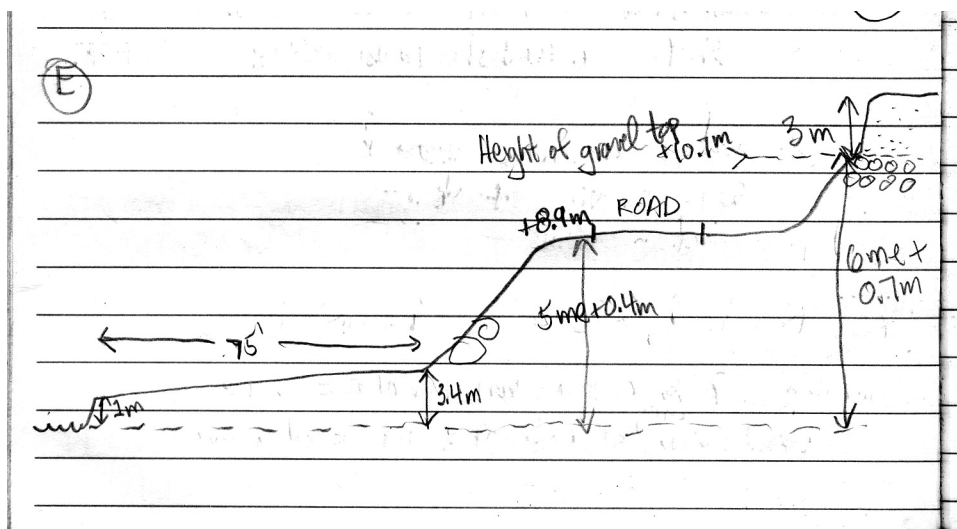 E
Height of gravel top
+10.7m
3m
+8.9m
ROAD
6me+
0.7m
5me+0.4m
75'
1m
3.4m